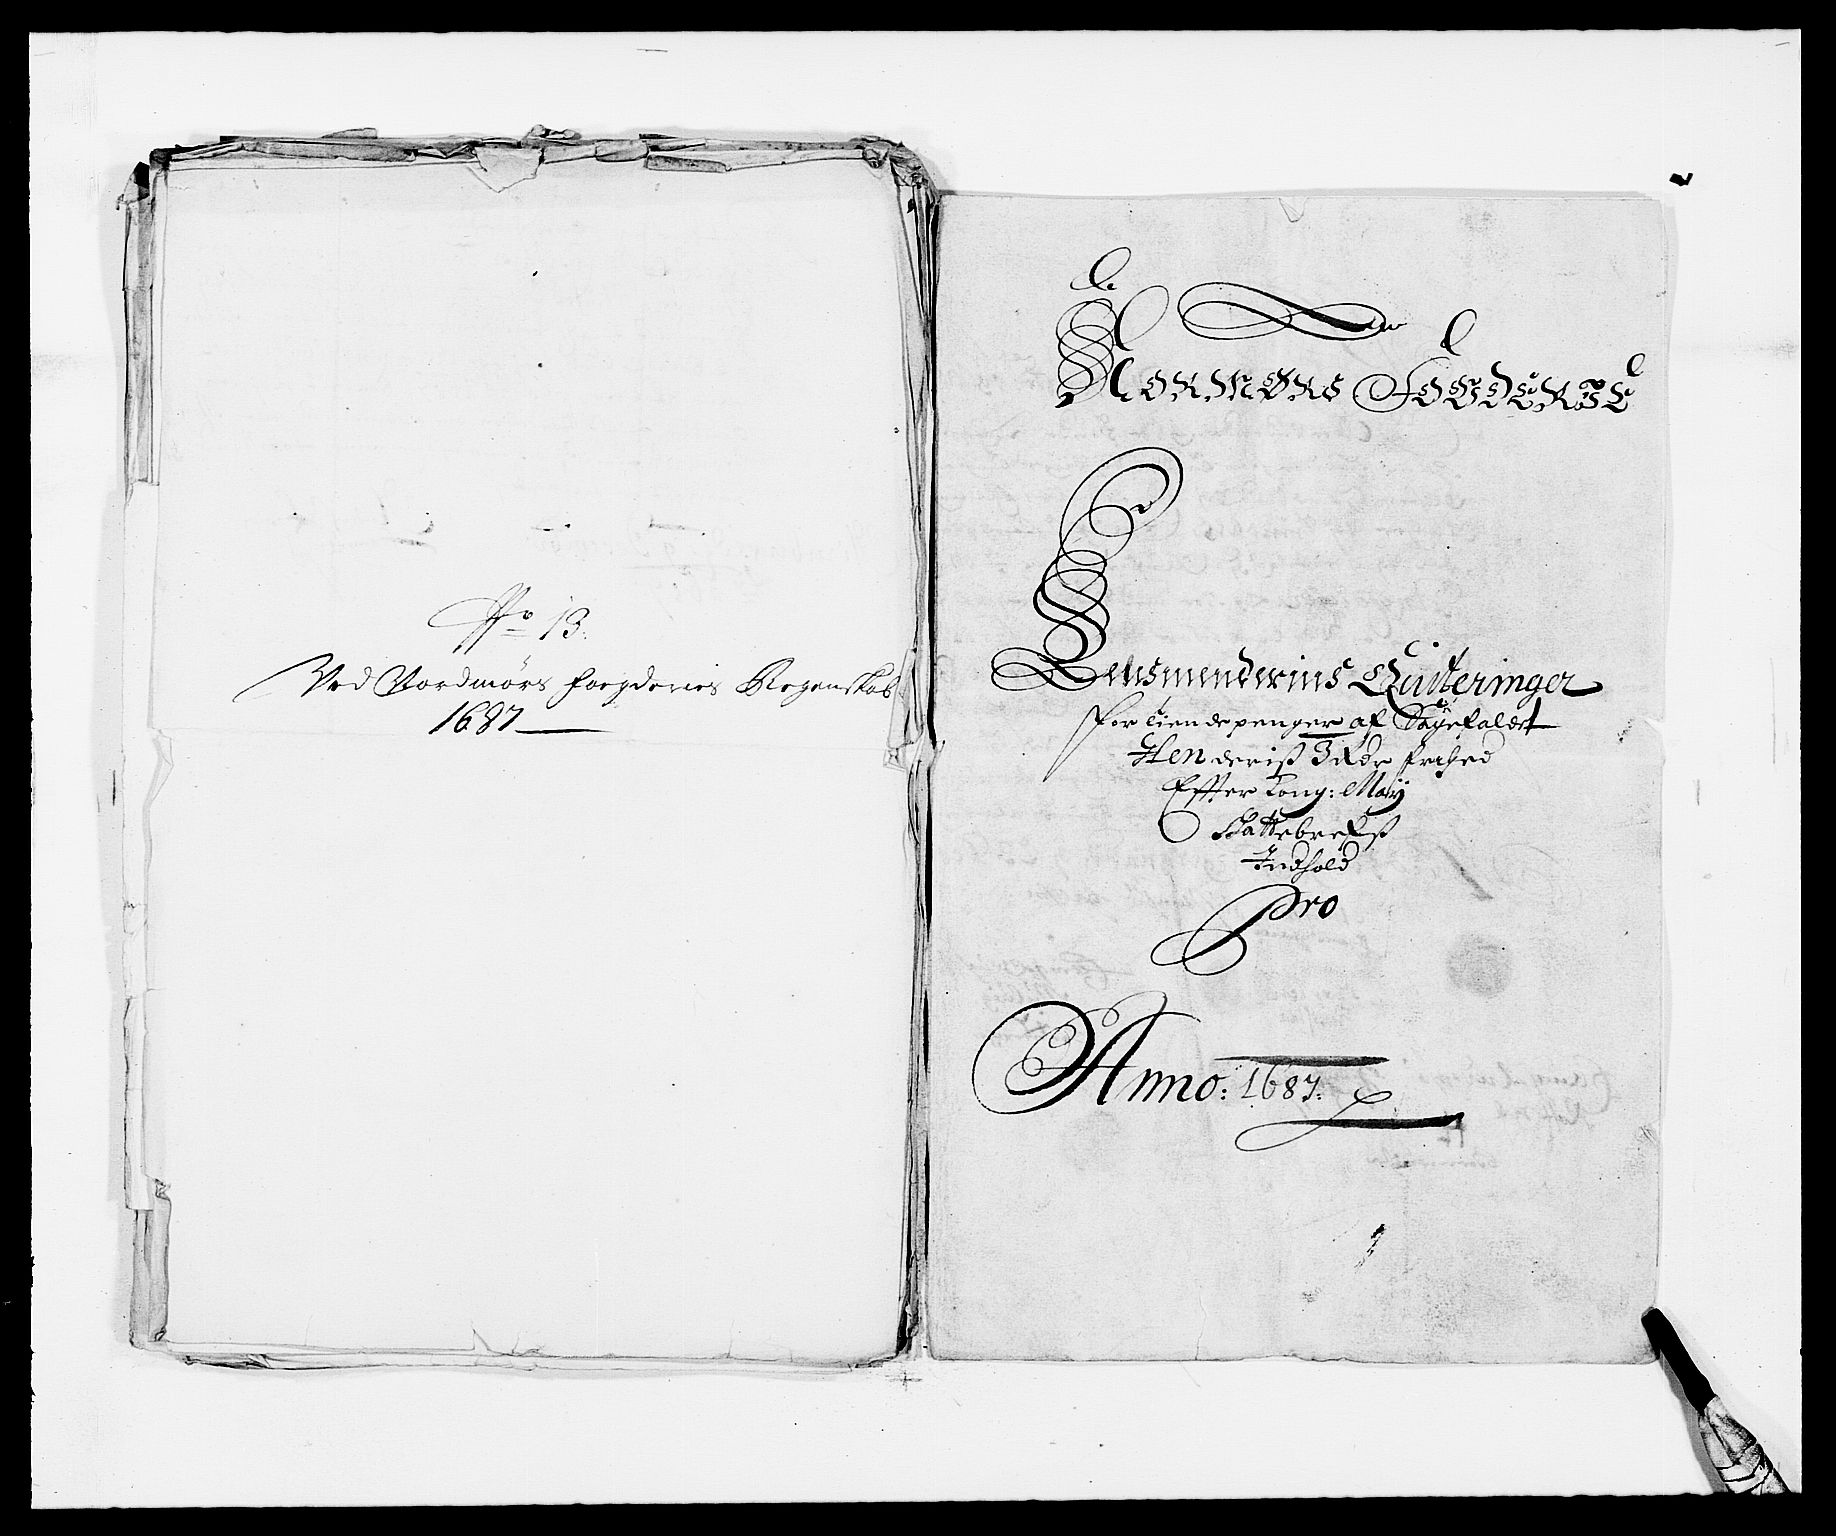 No 13.
Ved Nordmørs foegderies Regenskab
1687
NORMØRS FOGDERIE
Lensmenderins Quiteringer
for tiendepenger af Sagefaldet
Hen deris 3 Rdr frihed
Effter Kong: May
Skattebrefs
Indhold
Pro
Anno: 1687: